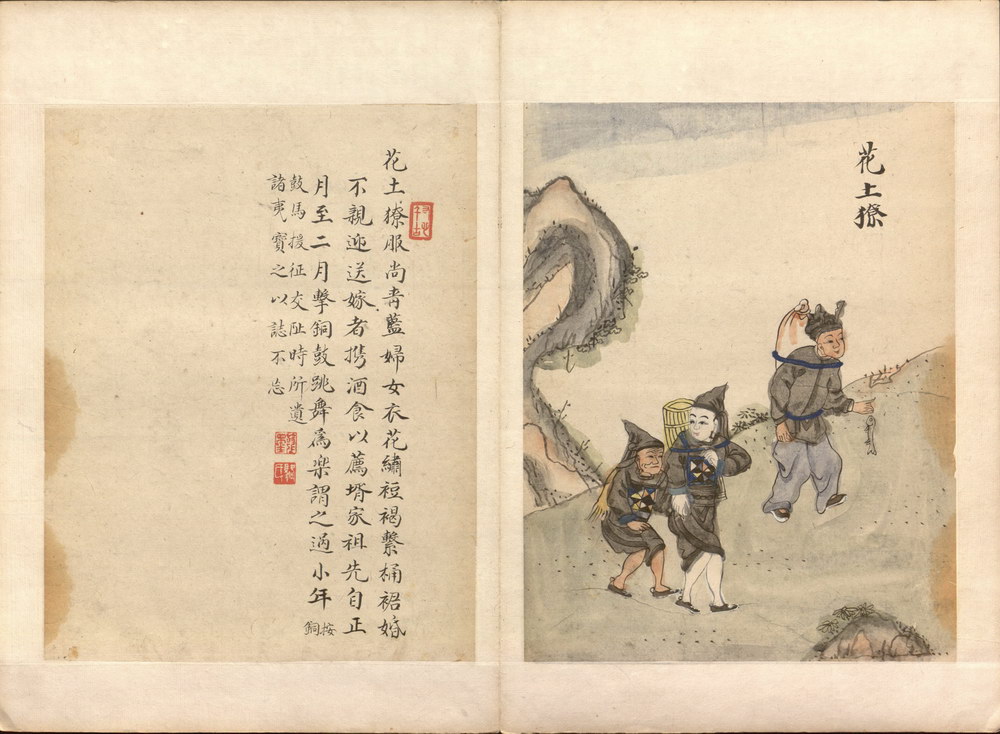 花土獠
花土獠服尚青藍婦女衣花繡裋褐繫桶裙婚
不親迎送嫁者携酒食以薦壻家祖先自正
月至二月擊銅鼓跳舞爲樂謂之過小年
按
銅
鼓馬援征交阯時所遺
諸夷寶之以誌不忘